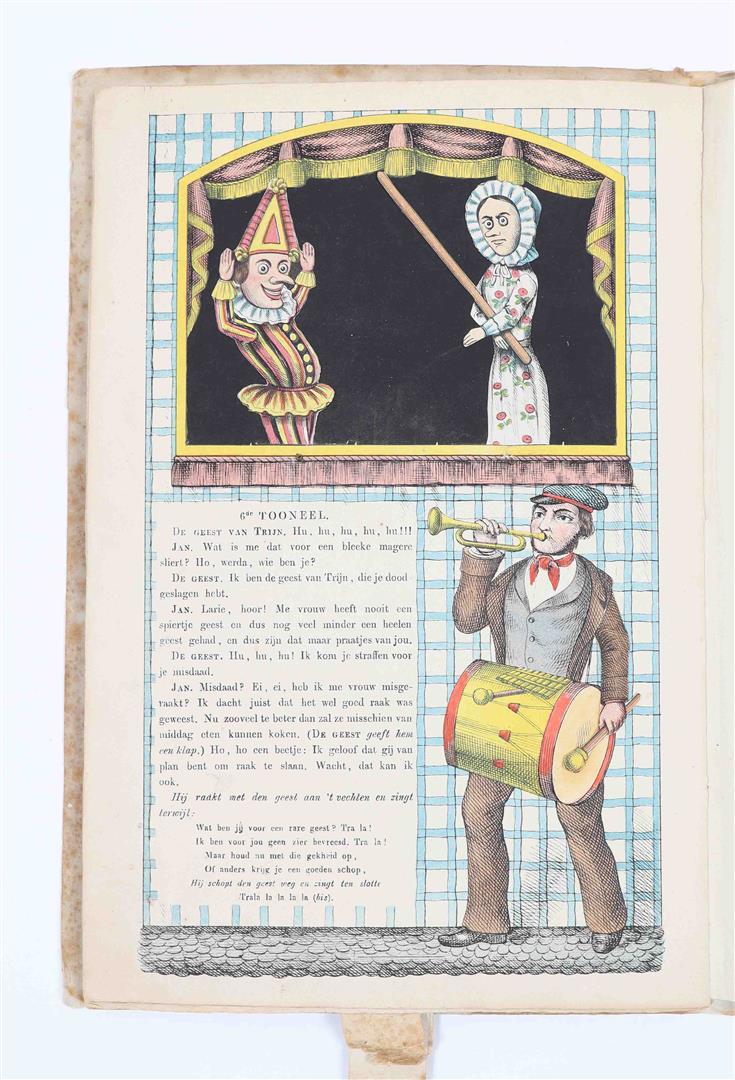 6de TOONEEL.
DE GEEST VAN TRIJN. Hu, hu, hu, hu, hu!!!
JAN. Wat is me dat voor een bleeke magere
sliert? Ho, werda, wie ben je?
DE GEEST. Ik ben de geest van Trijn, die je dood
geslagen hebt.
JAN. Larie, hoor! Me vrouw heeft nooit een
spiertje geest en dus nog veel minder een heelen
geest gehad, en dus zijn dat maar praatjes van jou.
DE GEEST. Hu, hu, hu! Ik kom je straffen voor
je misdaad.
JAN. Misdaad? Ei, ei, heb ik me vrouw misge-
raakt? Ik dacht juist dat het wel goed raak was
geweest. Nu zooveel te beter dan zal ze misschien van
middag eten kunnen koken. (DE GEEST geeft hem
een klap.) Ho, ho een beetje: Ik geloof dat gij van
plan bent om raak te slaan. Wacht, dat kan ik
ook.
Hij raakt met den geest aan 't vechten en zingt
terwijl:
Wat ben jij voor een rare geest? Tra la!
Ik ben voor jou geen zier bevreesd. Tra la!
Maar houd nu met die gekheid op,
Of anders krijg je een goeden schop,
Hij schopt den geest weg en zingt ten slotte
Trala la la la la (bis).